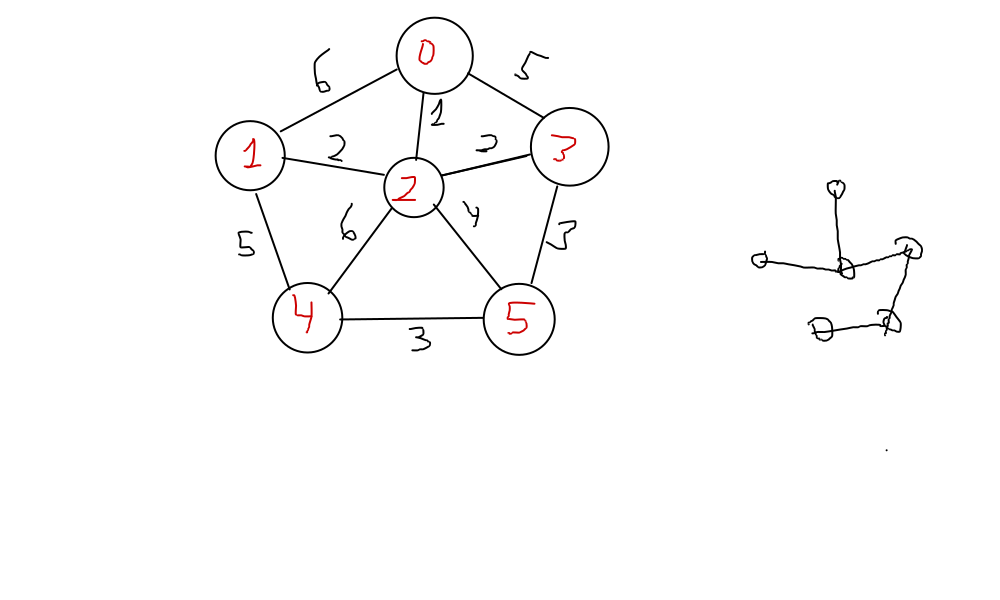 0
6
5
1
1
2
2
3
2
6
4
5
3
4
5
3